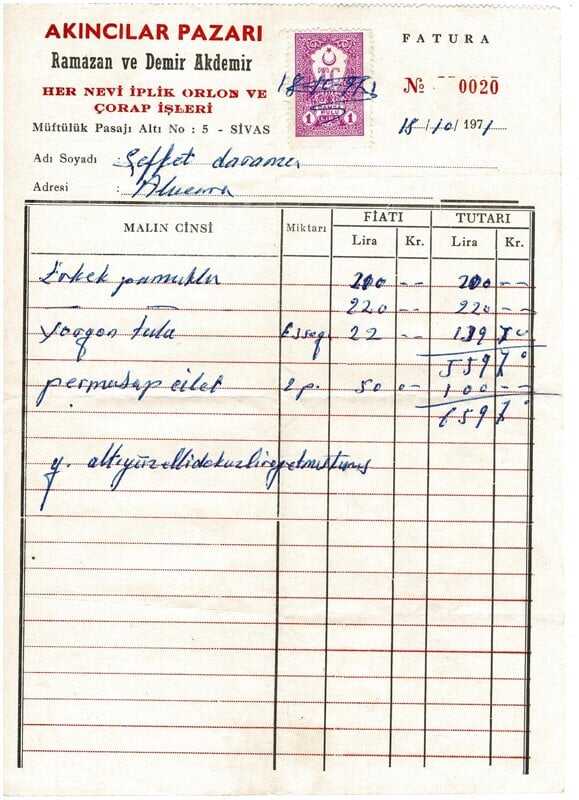 AKINCILAR PAZARI
Ramazan ve Demir Akdemir
HER NEVİ İPLİK ORLON VE
ÇORAP İŞLERİ
Müftülük Pasajı Altı No : 5 - SİVAS
T.C.
1 1
18/10/971
FATURA
№ 0020
18/10/1971
Adı Soyadı :
Adresi :
MALIN CİNSİ Miktarı FİATI TUTARI
Lira Kr. Lira Kr.
Erkek pamuklu 200 -- 200 --
220 -- 220 --
Yorgan 22 -- 139 70
559 70
2 p. 50 -- 100 --
659 70
y. altıyüzellidokuzlirayetmiştir